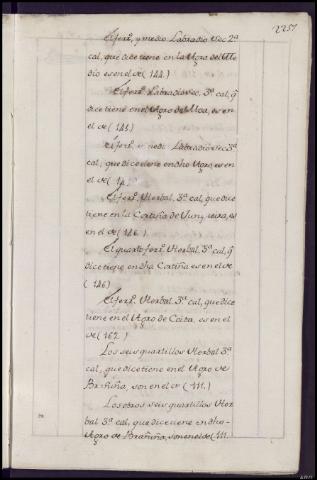 2257
El ferº, y medio Labradio Sec. 2ª
cal, que dice tiene en la Agro del Me
dio es en el de (144.)
El ferº Labradio Sec. 3ª cal, q̃
dice tiene en el Agro de Moa, es en
el de (143)
El ferº, y medio Labradio Sec. 3ª
cal, que dice tiene en dho Agro, es en
el de (
El ferº Herbal, 3ª cal, que dice
tiene en la Cortiña de es
en el de (146.)
El quarto ferº Herbal, 3ª cal, q̃
dice tiene en dha Cortiña es en el de
(146)
El ferº Herbal 3ª cal, que dice
tiene en el Agro de Coita, es en el
de (162.)
Los seis quartillos Herbal 3ª
cal, que dice tiene en el Agro de
Brañiña, son en el de (111.)
Los otros seis quartillos Her
bal 3ª cal, que dice tiene en dho
Agro de Brañiña, son en el de (111.)